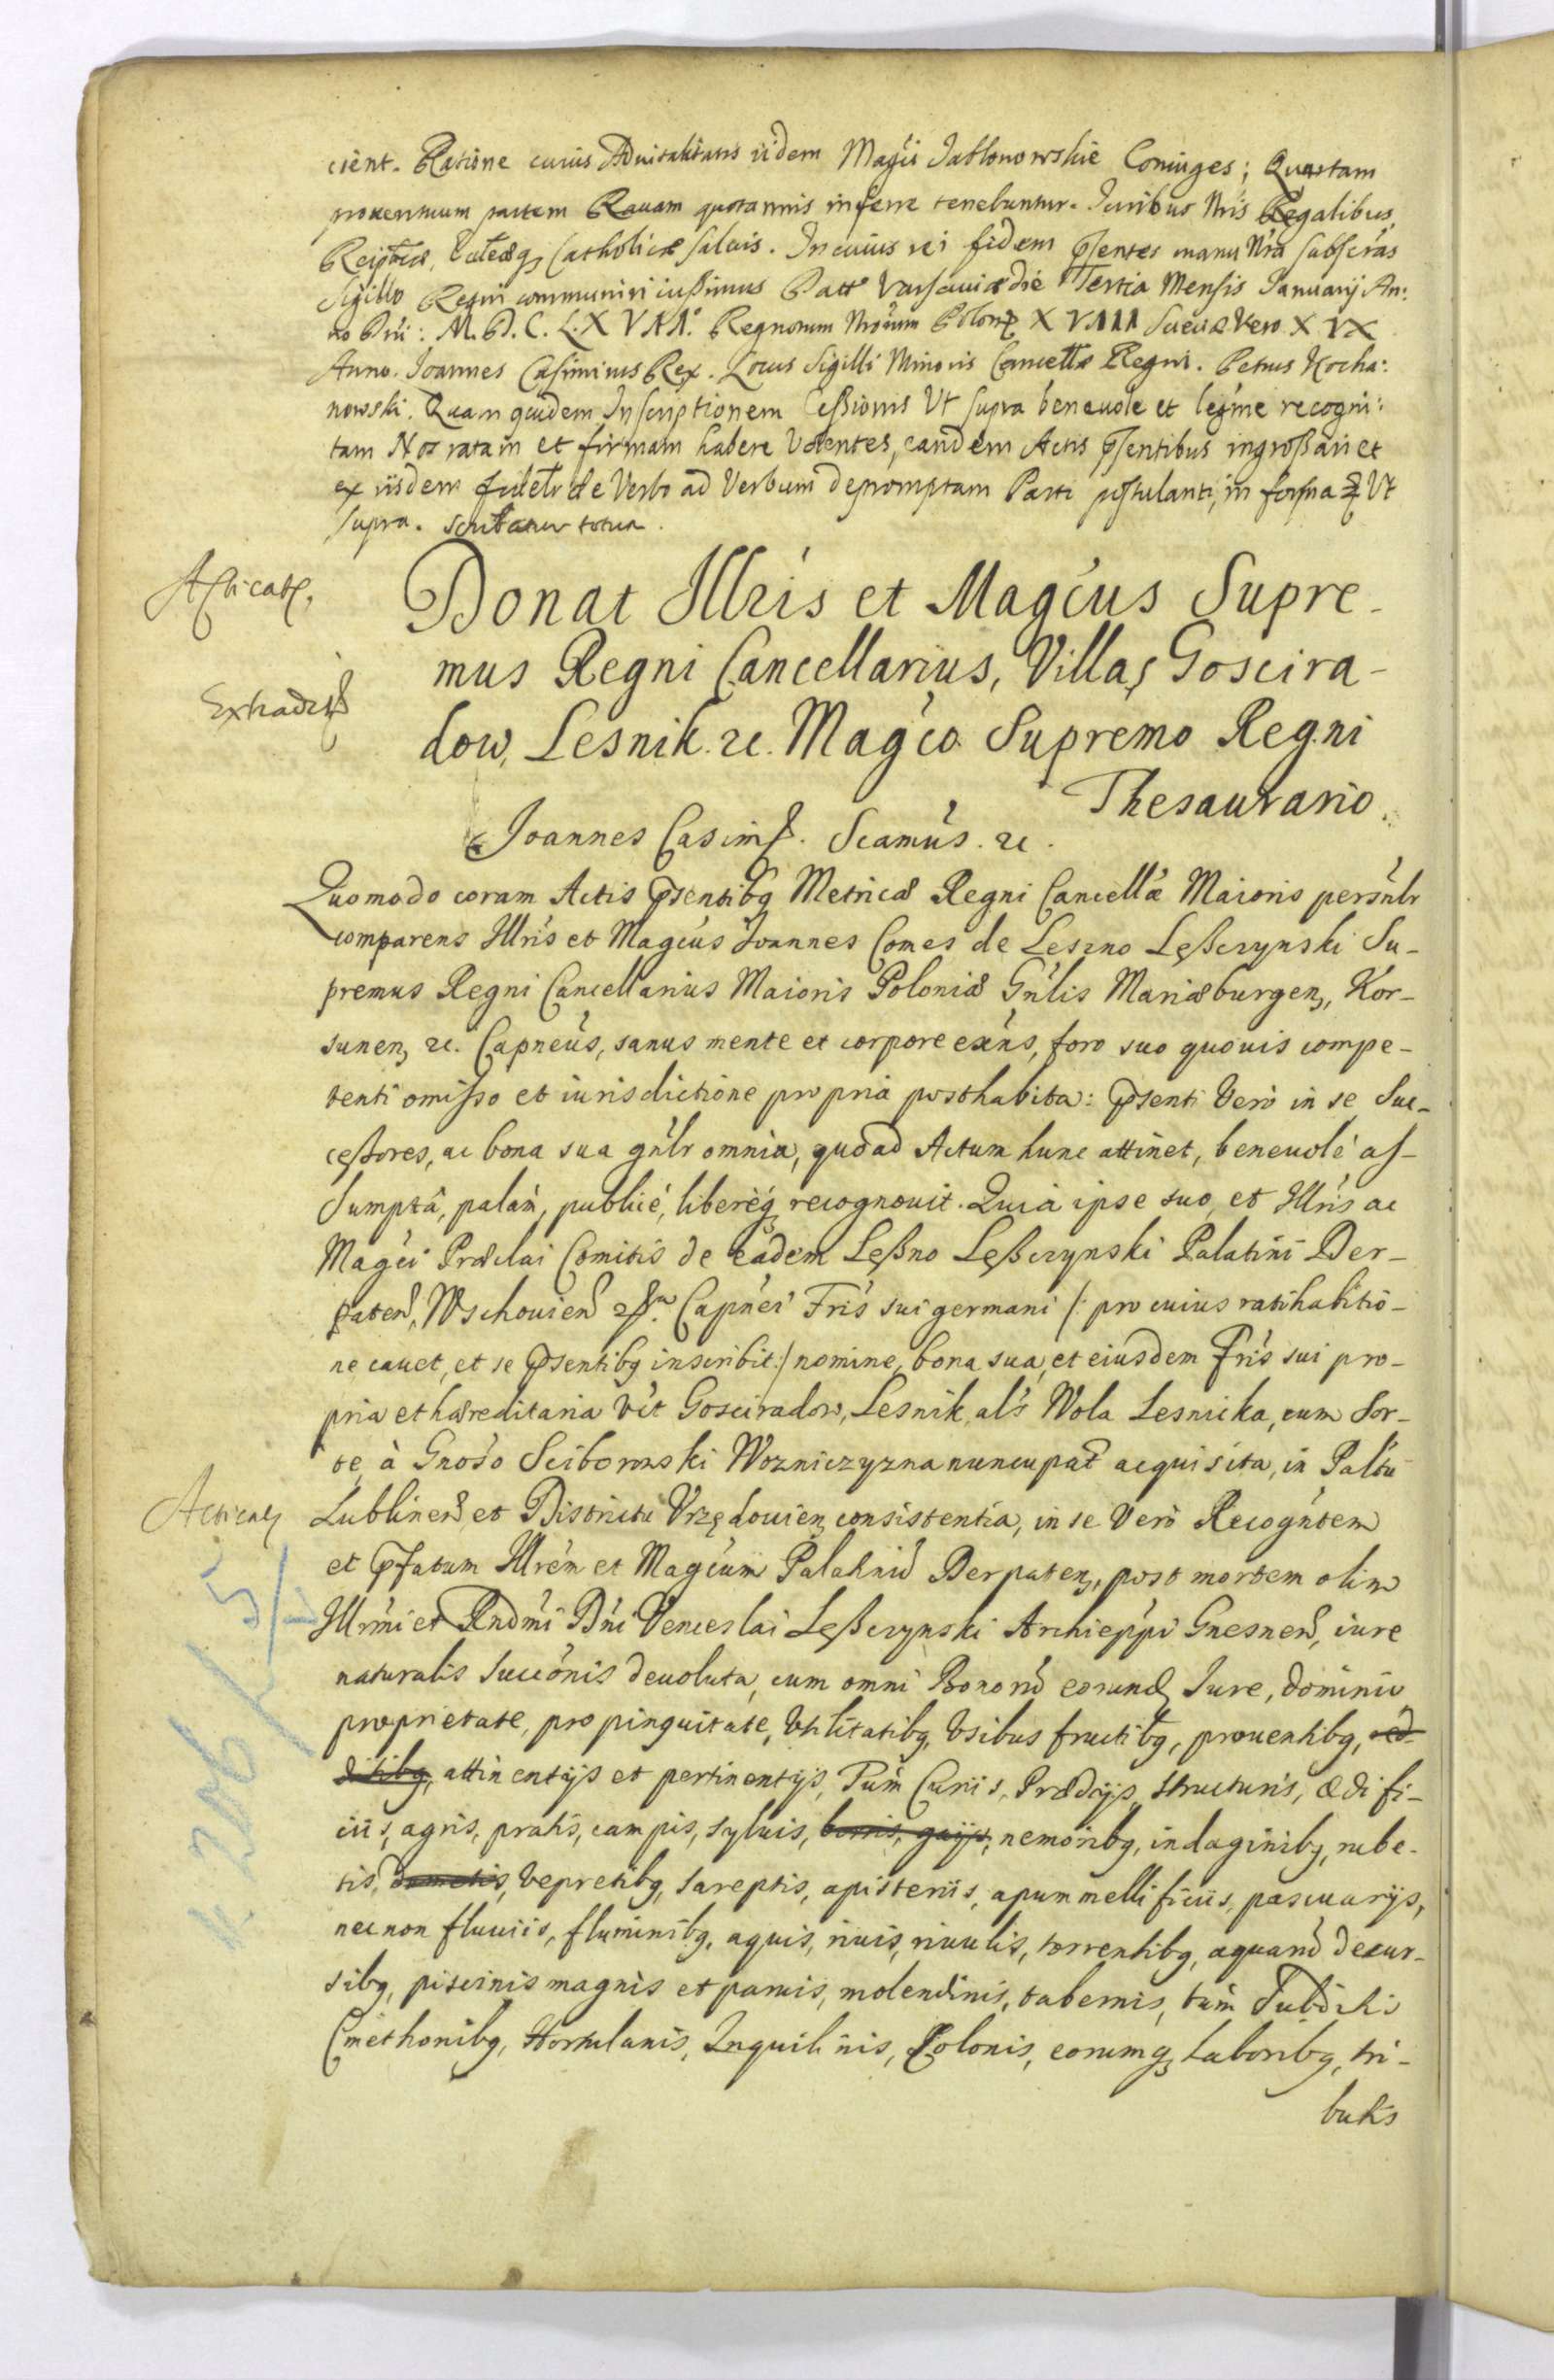 cient. Ratione cuius Aduitalitatis iidem Magci Jabłonowskie Coniuges; Quartam
prouentuum partem Rauam quotannis inferre tenebuntur. Iuribus Nris Regalibus,
Reiptcæ, Eccleæq, Catholicæ saluis. In cuius rei fidem psentes manu Nra subscras
Sigillo Regni communiri iussimus Datt Varsauiæ die Tertia Mensis Januarij An:
no Dni: M. D. C. L. X V I I.° Regnorum Nrorum Polon X V I I I Sueciæ Vero X I X
Anno. Joannes Casimirus Rex. Locus Sigilli Minoris Cancellæ Regni. Petrus Kocha:
nowski. Quam quidem Inscriptionem Cessionis Vt supra beneuole et legme recogni:
tam Nos ratam et firmam habere Volentes, eandem Actis psentibus ingrossari et
ex iisdem fidelr de Verbo ad Verbum depromptam Parti postulanti, in forma Vt
supra.
Acticat,
Donat Illris et Magcus Supre-
mus Regni Cancellarius, Villas Goscira-
Extradit
dow, Lesnik. &c. Magco Supremo Regni
Thesaurario.
Joannes Casim. Scamus. &c.
Quomodo coram Actis psentibq Metricæ Regni Cancellæ Maioris persnlr
comparens Illris et Magcus Joannes Comes de Leszno Leßczynski Su-
premus Regni Cancellarius Maioris Poloniæ Gnlis Mariæburgen, Kor-
sunen, &c. Capneus, sanus mente et corpore exns, foro suo quouis compe-
tenti omisso et iurisdictione propria posthabita: psenti Verò in se Suc-
cessores, ac bona sua gnlr omnia, quoad Actum hunc attinet, beneuolé as-
sumptâ, palàm, publicé, liberèq recognouit. Quia ipse suo, et Illris ac
Magci Præclai Comitis de eâdem Leßno Leßczynski Palatini Der-
paten, Wschouien &c. Capnei Fris sui germani /: pro cuius ratihabitio-
ne cauet, et se psentibq inscribit:/ nomine, bona sua, et eiusdem Fris sui pro-
pria et hæreditaria vet Gosciradow, Lesnik, als Wola Lesnicka, cum Sor-
te, à Gnoso Sciborowski Wozniczyzna nuncupat acquisita, in Paltu
Acticat
Lublinen et Districtu Vrzędouien, consistentia, in se Verò Recogntem
et pfatum Illrem et Magcum Palatinũ Derpaten, post mortem olim
Illrmi et Rndmi Dni Venceslai Leßczynski Archieppi Gnesnen, iure
naturalis Succonis deuoluta, cum omni Bonorũ eorund Jure, dominio
proprietate, propinquitate, Vtilitatibq, Vsibus fructibq, prouentibq, red-
ditibq, attinentijs et pertinentijs, Tum Curiis, Prædijs, structuris, ædifi-
ciis, agris, pratis, campis, syluis, borris, gaijs, nemoribq, indaginibq, rube-
tis, dumetis, vepretibq, sareptis, apisteriis, apum mellificiis, pascuarijs,
necnon fluuiis, fluminibq, aquis, riuis, riuulis, torrentibq, aquarũ decur-
sibq, piscinis magnis et paruis, molendinis, tabernis, tum Subditis
Cmethonibq, Hortulanis, Inquilinis, Colonis, eorumq, laboribq, tri-
butis